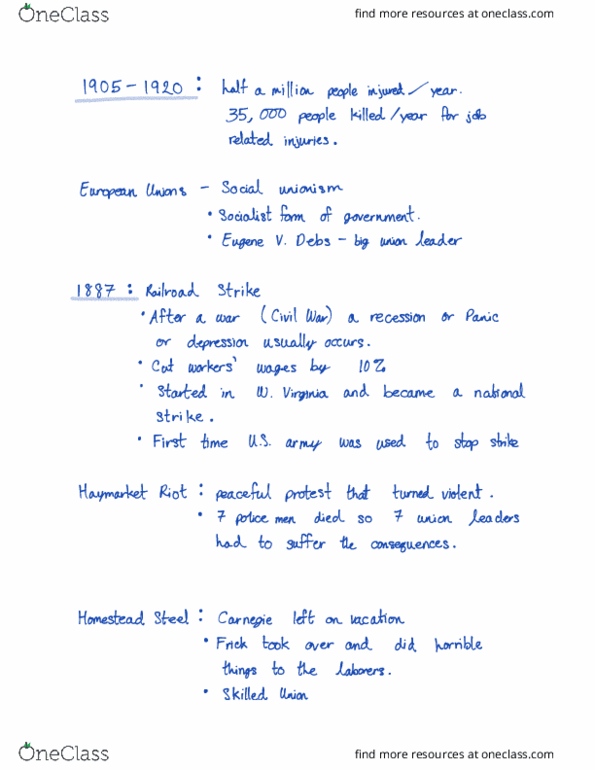 OneClass find more resources at oneclass.com
1905 - 1920 : half a million people injured / year.
35,000 people killed / year for job
related injuries.
European Unions - Social unionism
• Socialist form of government.
• Eugene V. Debs - big union leader
1887 : Railroad Strike
• After a war (Civil War) a recession or Panic
or depression usually occurs.
• Cut workers' wages by 10%
• Started in W. Virginia and became a national
strike.
• First time U.S. army was used to stop strike
Haymarket Riot : peaceful protest that turned violent.
• 7 police men died so 7 union leaders
had to suffer the consequences.
Homestead Steel : Carnegie left on vacation
• Frick took over and did horrible
things to the laborers.
• Skilled Union
OneClass find more resources at oneclass.com